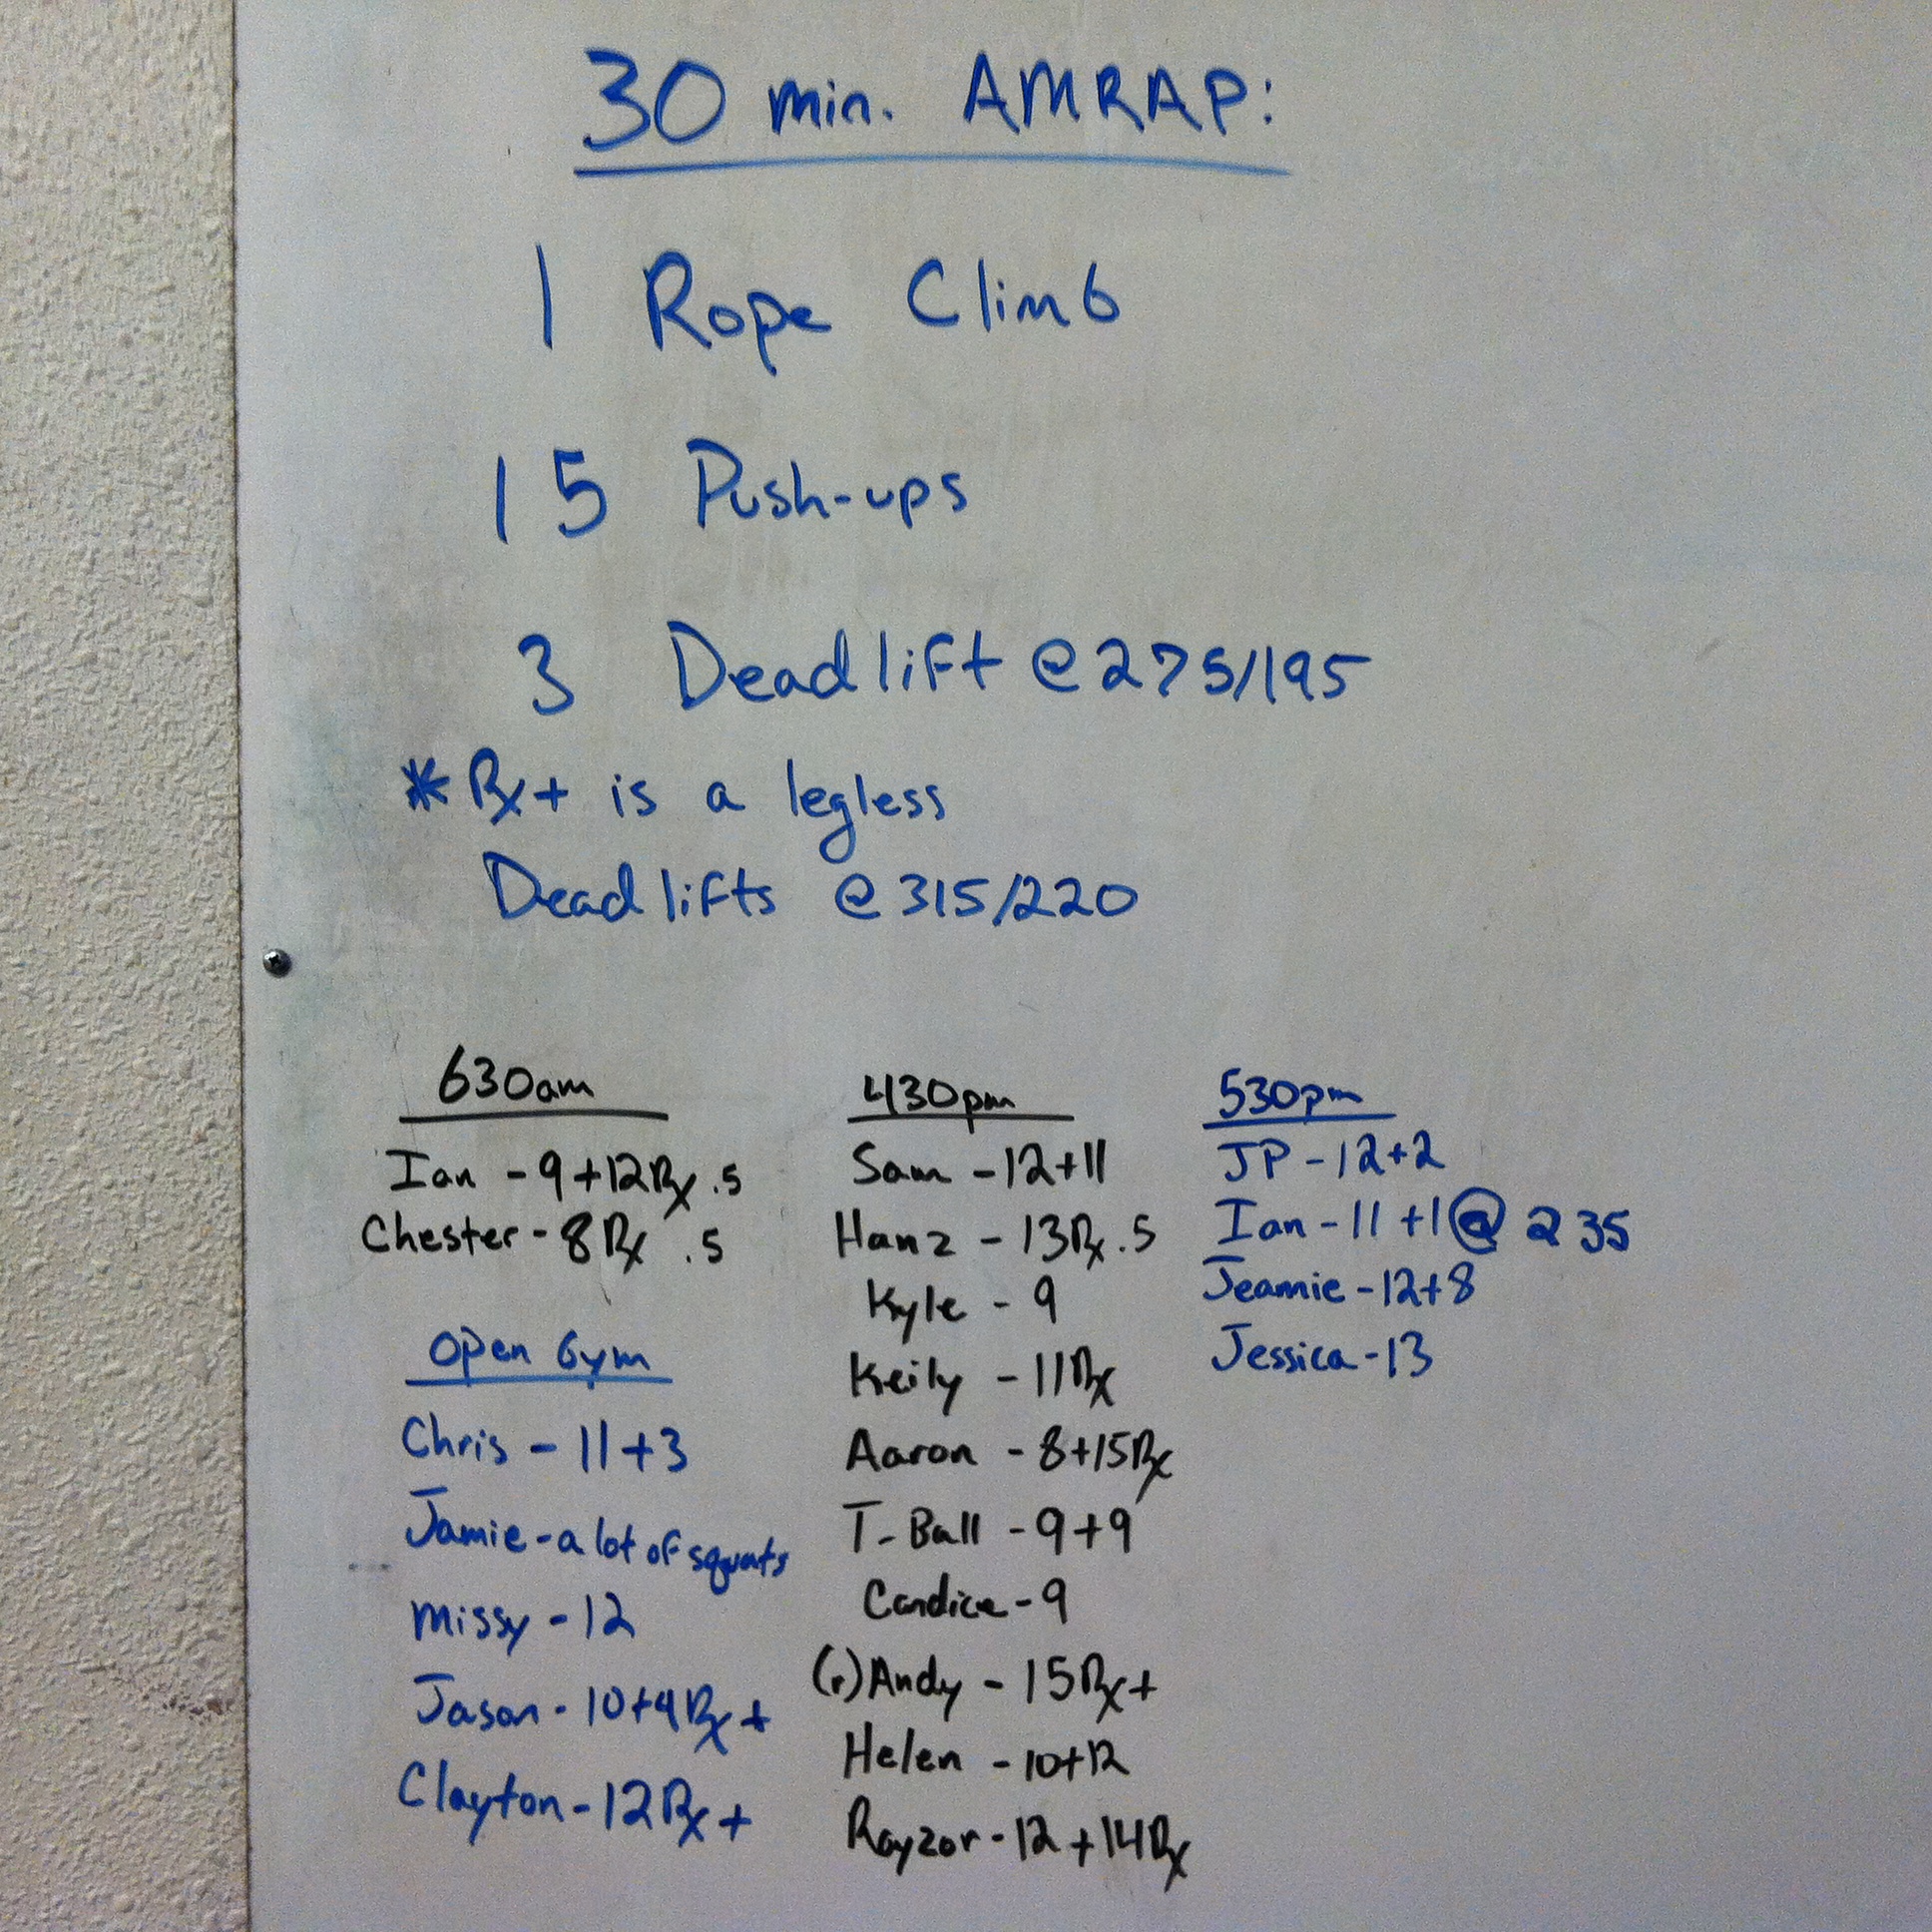 30 min. AMRAP:
1 Rope Climb
15 Push-ups
3 Deadlift @ 275/195
* Rx+ is a legless
Deadlifts @ 315/220
630am
Ian - 9+12Rx .5
Chester - 8Rx .5
Open Gym
Chris - 11+3
Jamie - a lot of squats
Missy - 12
Jason - 10+9Rx+
Clayton - 12Rx+
430pm
Sam - 12+11
Hanz - 13Rx.5
Kyle - 9
Keily - 11Rx
Aaron - 8+15Rx
T-Ball - 9+9
Candice - 9
(r)Andy - 15Rx+
Helen - 10+12
Rayzor - 12+14Rx
530pm
JP - 12+2
Ian - 11+1@ 235
Jeamie - 12+8
Jessica - 13